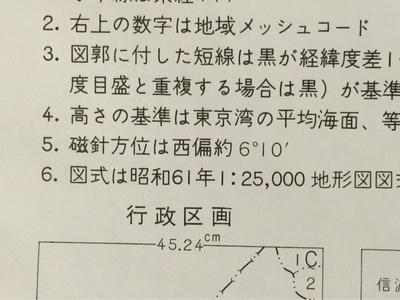 2. 右上の数字は地域メッシュコード
3. 図郭に付した短線は黒が経緯度差1
度目盛と重複する場合は黒）が基準
4. 高さの基準は東京湾の平均海面、等
5. 磁針方位は西偏約6°10′
6. 図式は昭和61年1:25,000 地形図図式
行政区画
45.24cm
1C
2
信濃